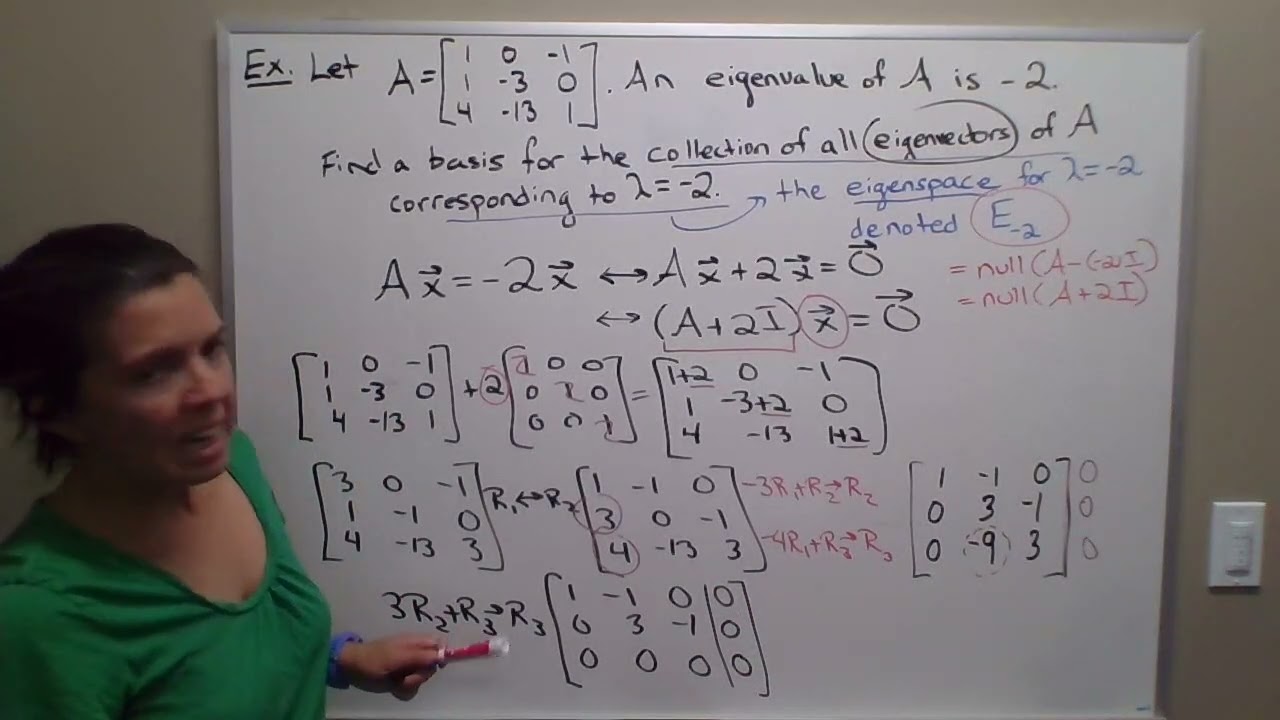 Ex. Let A = [1 0 -1; 1 -3 0; 4 -13 1]. An eigenvalue of A is -2.
Find a basis for the collection of all eigenvectors of A
corresponding to λ = -2. the eigenspace for λ = -2
denoted E₋₂
Ax⃗ = -2x⃗ ↔ Ax⃗ + 2x⃗ = 0⃗ = null(A-(-2)I)
↔ (A+2I)x⃗ = 0⃗ = null(A+2I)
[1 0 -1; 1 -3 0; 4 -13 1] + 2[1 0 0; 0 1 0; 0 0 1] = [1+2 0 -1; 1 -3+2 0; 4 -13 1+2]
[3 0 -1; 1 -1 0; 4 -13 3] R₁↔R₂ [1 -1 0; 3 0 -1; 4 -13 3] -3R₁+R₂→R₂ -4R₁+R₃→R₃ [1 -1 0; 0 3 -1; 0 -9 3] 0 0 0
3R₂+R₃→R₃ [1 -1 0 | 0; 0 3 -1 | 0; 0 0 0 | 0]